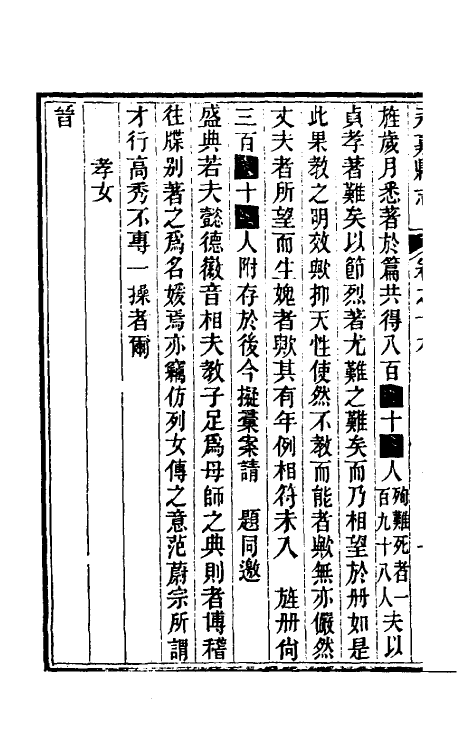 旌歲月悉著於篇共得八百十人殉難死者一百九十八人夫以
貞孝著難矣以節烈著尤難之難矣而乃相望於册如是
此果教之明效歟抑天性使然不教而能者歟無亦儼然
丈夫者所望而生媿者歟其有年例相符未入 旌册尙
三百十人附存於後今擬彚案請 題同邀
盛典若夫懿德徽音相夫教子足爲母師之典則者博稽
往牒别著之爲名媛焉亦竊仿列女傳之意范蔚宗所謂
才行高秀不專一操者爾
孝女
晉